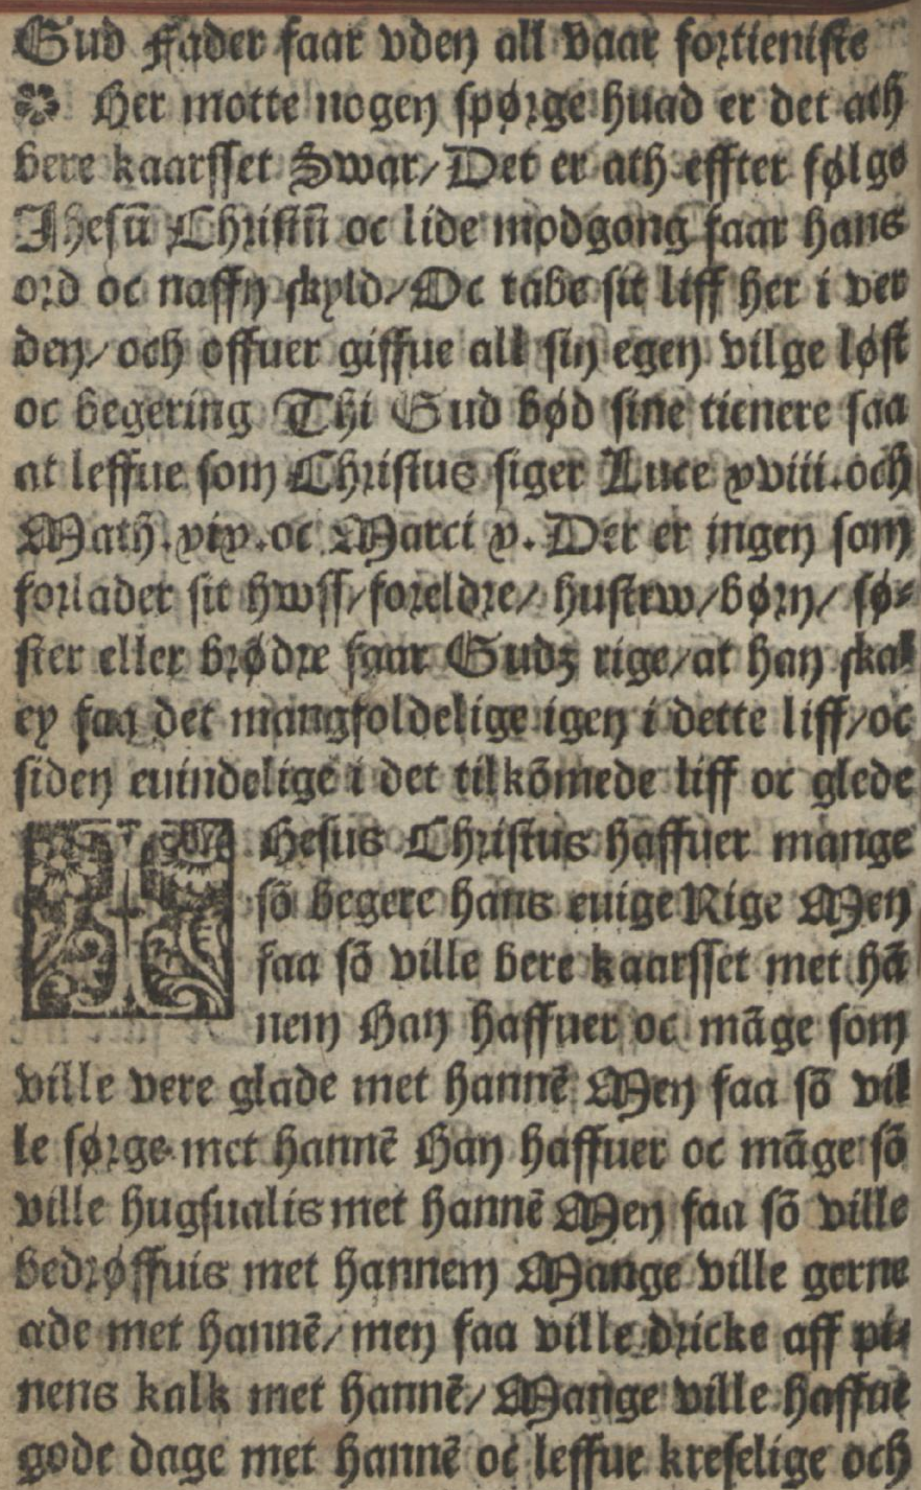 Gud Fader faar vden all vaar fortieniste
Her motte nogen spørge huad er det ath
bere kaarsset Swar/Det er ath effter følge
Jhesū Christū oc lide modgong faar hans
ord oc naffn skyld/Oc tabe sit liff her i ver
den/och offuer giffue all sin egen vilge løst
oc begering Thi Gud bød sine tienere saa
at leffue som Christus siger Luce xviii.och
Math.xix.oc Marci x. Der er ingen som
forlader sit hwss/foreldre/hustrw/børn/sø-
ster eller brødre faar Gudz rige/at han skal
ey faa det mangfoldelige igen i dette liff/oc
siden euindelige i det tilkōmede liff oc glede
IHesus Christus haffuer mange
sō begere hans euige Rige Men
faa sō ville bere kaarsset met hā
nem Han haffuer oc māge som
ville vere glade met hannē Men faa sō vil
le sørge met hannē Han haffuer oc māge sō
ville hugsualis met hannē Men faa sō ville
bedrøffuis met hannem Mange ville gerne
æde met hannē/men faa ville dricke aff pi-
nens kalk met hannē/Mange ville haffue
gode dage met hannē oc leffue kreselige och